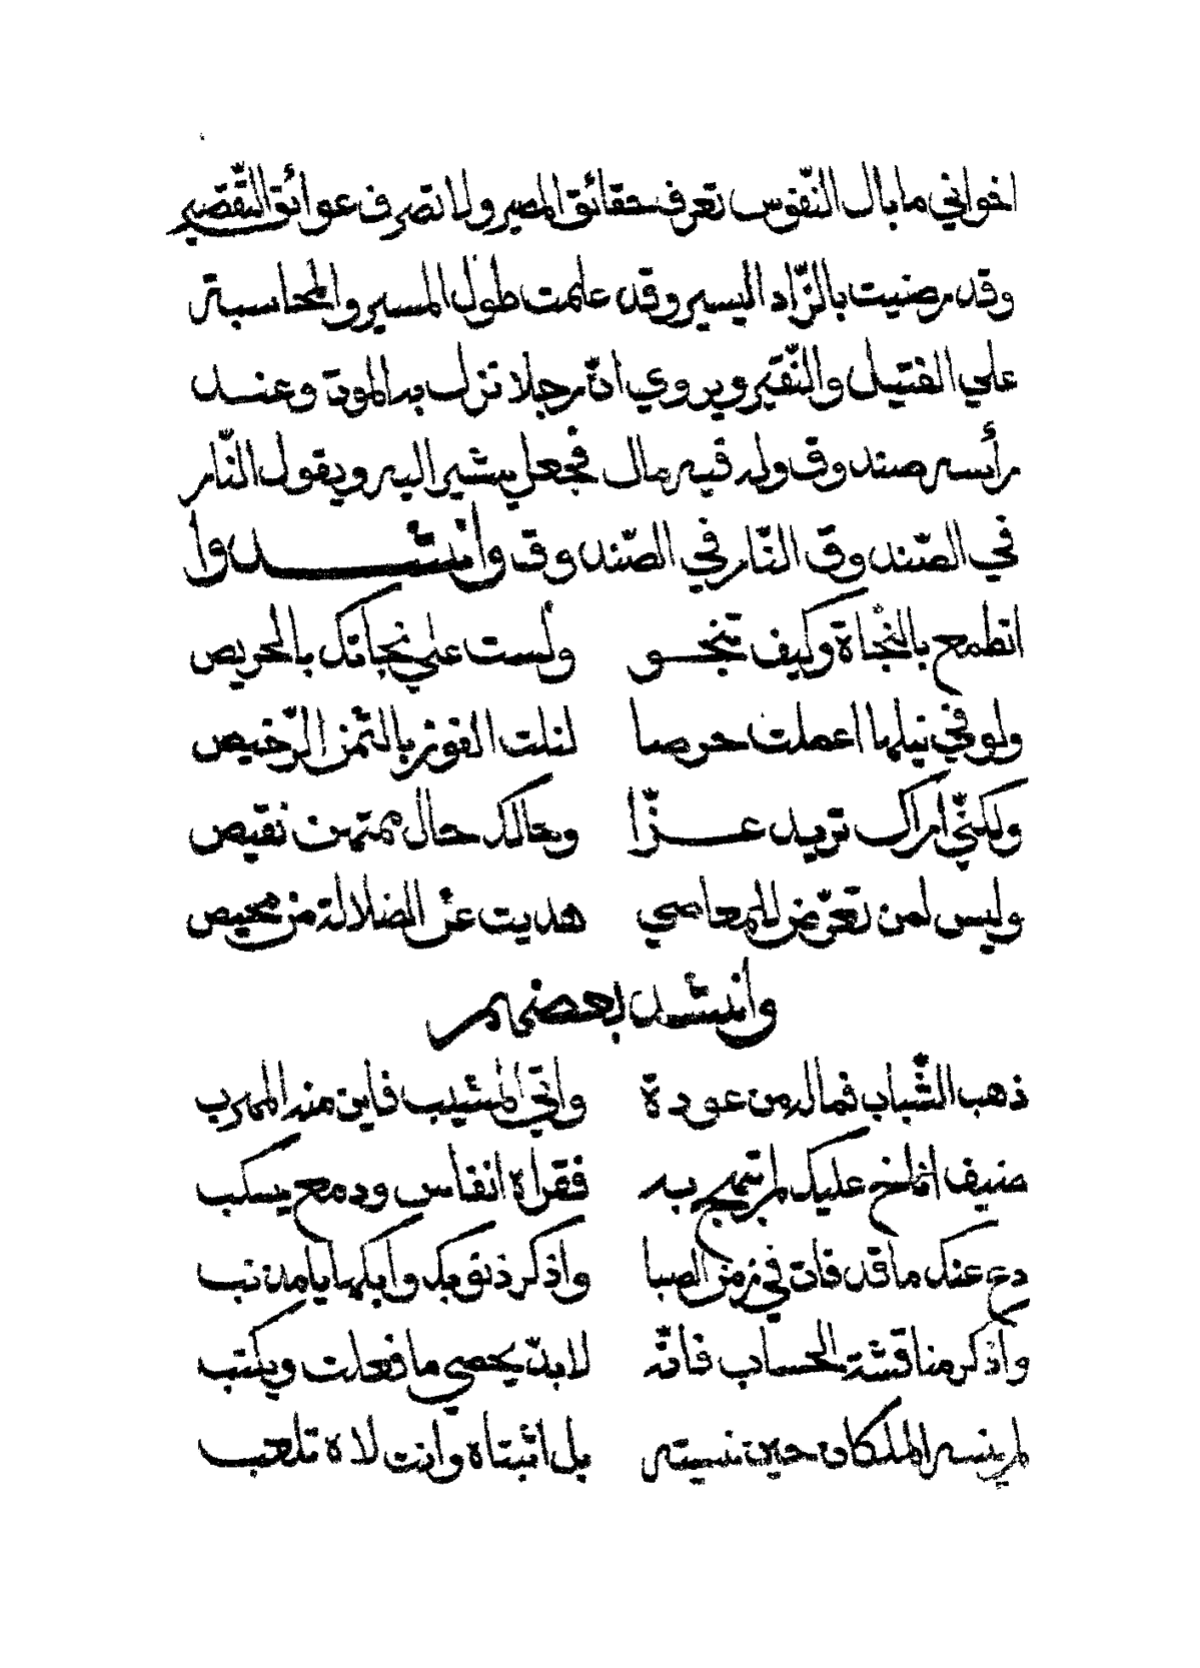 اخواني ما بال النّفوس تعرف حقائق المصير ولا تصرف عوائق التّقصير
وقد رضيت بالزّاد اليسير وقد علمت طول المسير والمحاسبة
علي الفتيل والنّقير ويروي انّ رجلا نزل به الموت وعند
رأسه صندوق وله فيه مال فجعل يشير اليه ويقول النّار
في الصّندوق النّار في الصّندوق وأنشدوا
اتطمع بالنّجاة وكيف تنجو ولست علي نجاتك بالحريص
ولو في نيلها اعملت حرصا لنلت الفوز بالثّمن الرّخيص
ولكنّي اراك تريد عزّا وحالك حال ممتهن نقيص
وليس لمن تعرّض للمعاصي هديت عن الضلالة من محيص
وأنشد بعضهم
ذهب الشّباب فما له من عودة واتي المشيب فاين منه المهرب
ضيف اناخ عليك لم تسمح به فقراه انفاس ودمع يسكب
دع عنك ما قد فات في زمن الصبا واذكر ذنوبك وابكها يا مذنب
واذكر مناقشة الحساب فانّه لا بدّ يحصي ما فعلت ويكتب
لم ينسه الملكان حين نسيته بل اثبتاه وانت لاه تلعب